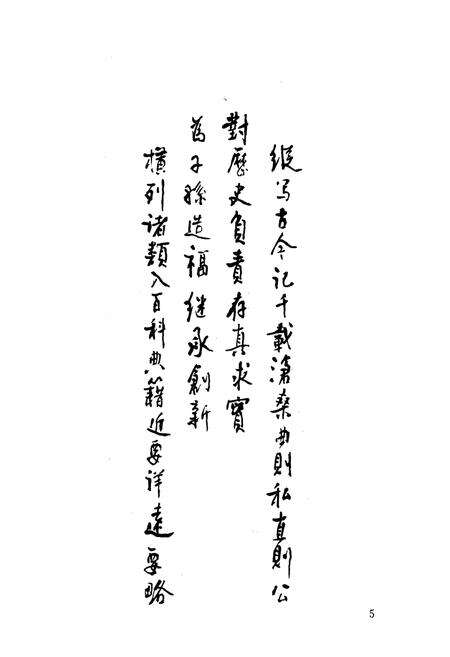 縱写古今记千載滄桑曲則私直則公
對歷史負責存真求實
為子孫造福继承創新
横列诸類入百科典籍近要详遠要略
5